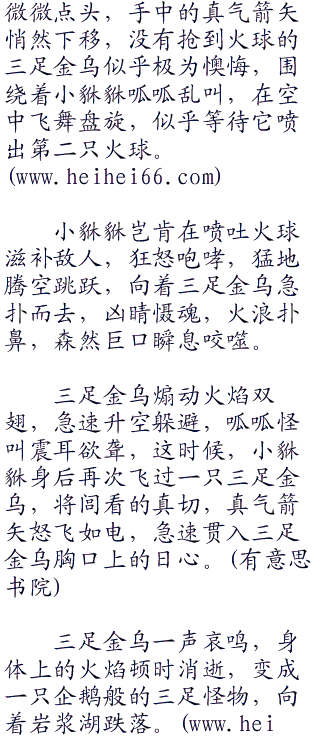 微微点头，手中的真气箭矢
悄然下移，没有抢到火球的
三足金乌似乎极为懊悔，围
绕着小貅貅呱呱乱叫，在空
中飞舞盘旋，似乎等待它喷
出第二只火球。
(www.heihei66.com)
小貅貅岂肯在喷吐火球
滋补敌人，狂怒咆哮，猛地
腾空跳跃，向着三足金乌急
扑而去，凶睛慑魂，火浪扑
鼻，森然巨口瞬息咬噬。
三足金乌煽动火焰双
翅，急速升空躲避，呱呱怪
叫震耳欲聋，这时候，小貅
貅身后再次飞过一只三足金
乌，将闾看的真切，真气箭
矢怒飞如电，急速贯入三足
金乌胸口上的日心。(有意思
书院)
三足金乌一声哀鸣，身
体上的火焰顿时消逝，变成
一只企鹅般的三足怪物，向
着岩浆湖跌落。(www.hei